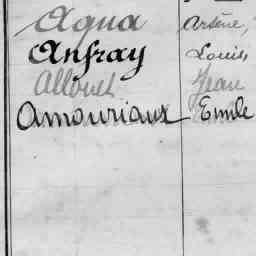 Agua Arsène,
Anfray Louis,
Allouet Jean
Amouriaux Emile